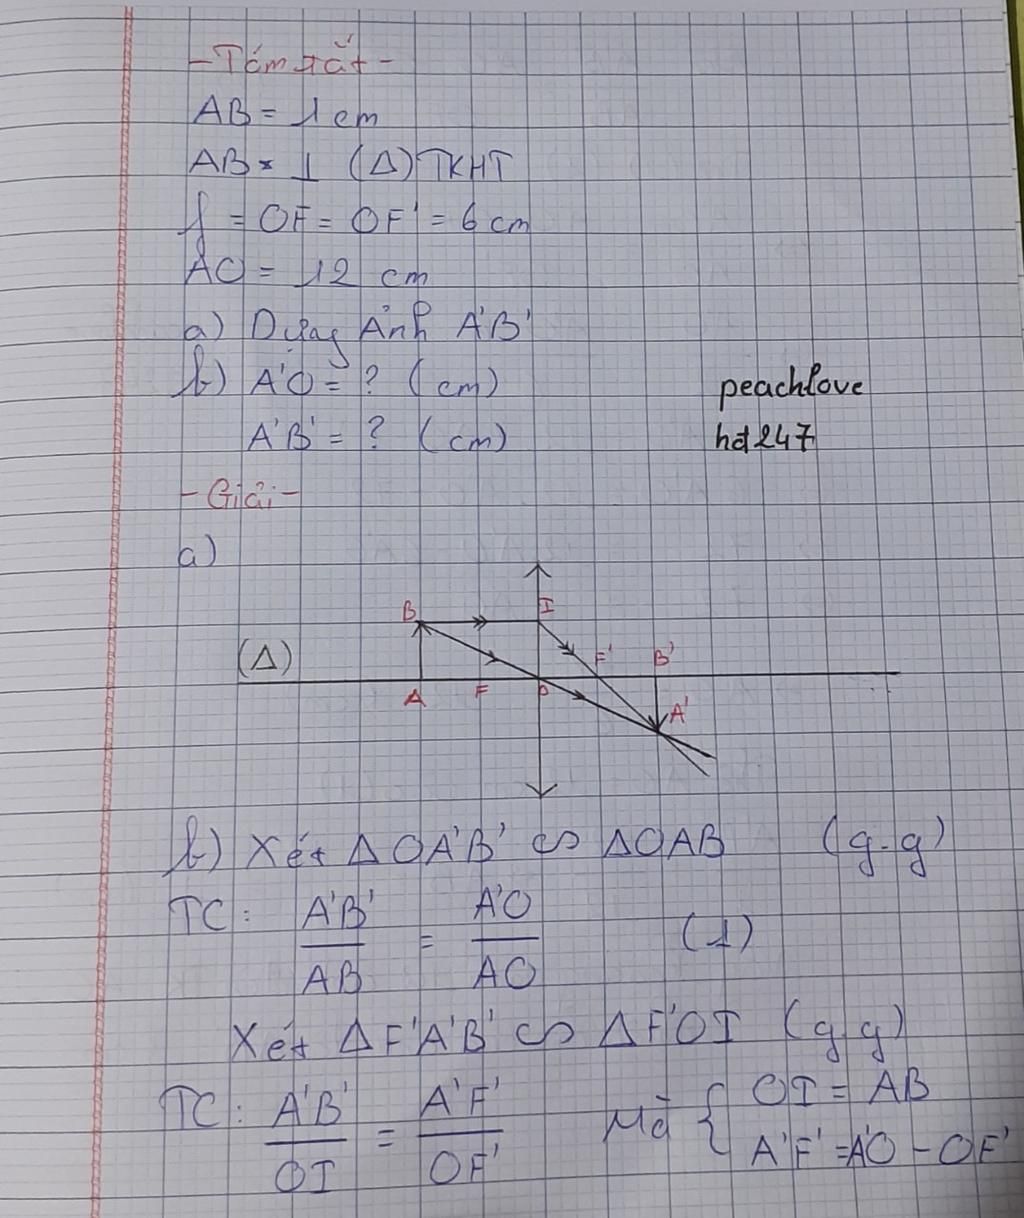 - Tóm tắt -
AB = 1 cm
AB ⊥ (Δ) TKHT
f = OF = OF' = 6 cm
AO = 12 cm
a) Dựng Ảnh A'B'
b) A'O = ? (cm)
peachlove
A'B' = ? (cm)
hd247
- Giải -
a)
B I
(Δ) F' B'
A F O A'
b) Xét ΔOA'B' ∽ ΔOAB (g.g)
TC: A'B'/AB = A'O/AO (1)
Xét ΔF'A'B' ∽ ΔF'OI (g.g)
TC: A'B'/OI = A'F'/OF' Mà { OI = AB
A'F' = A'O - OF'